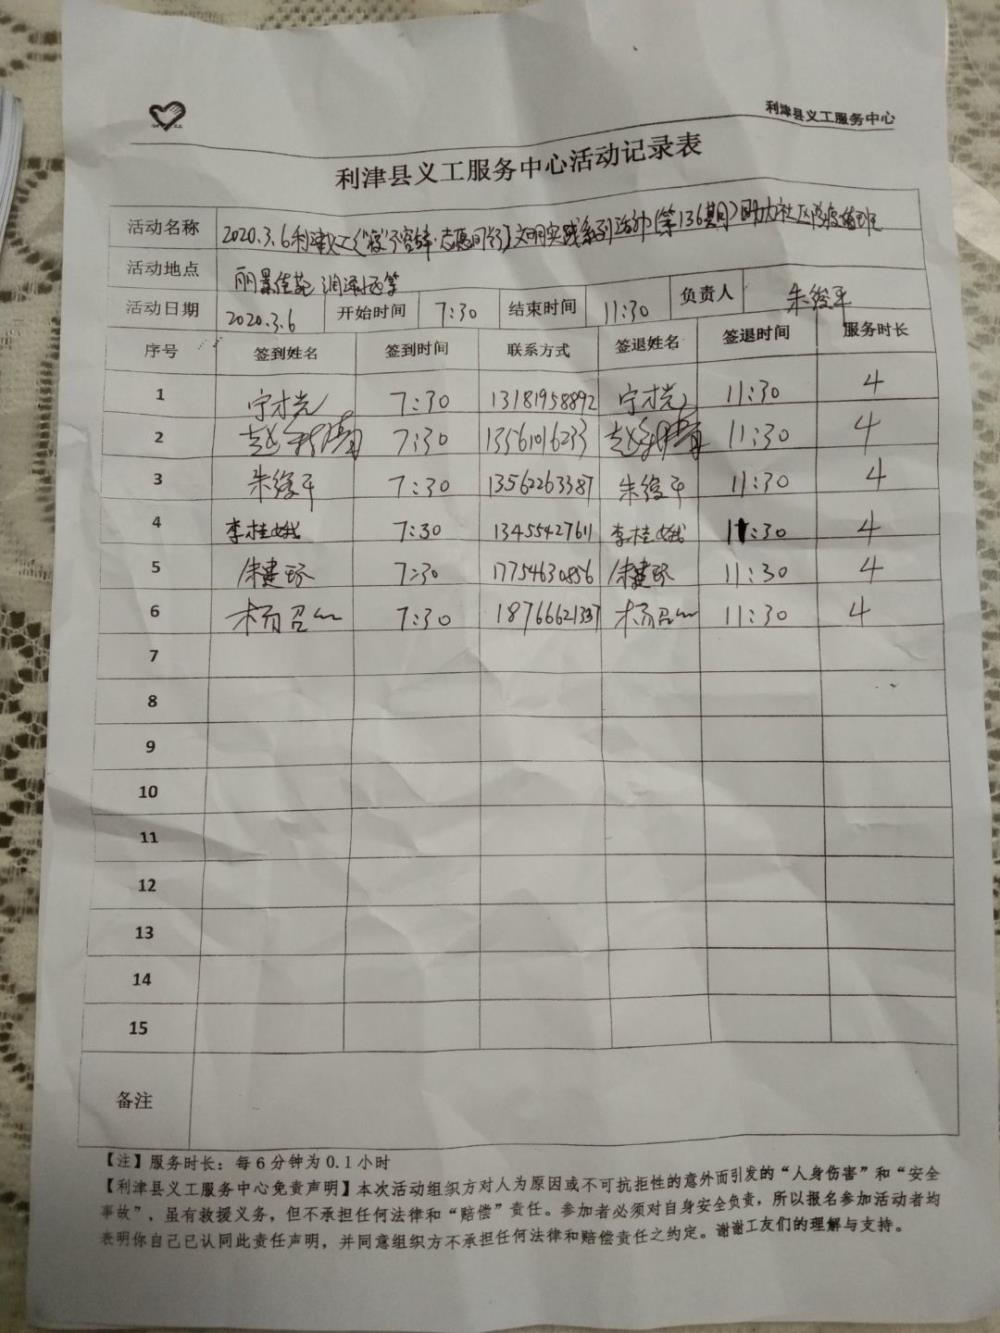 利津县义工服务中心
利津县义工服务中心活动记录表
活动名称 2020.3.6利津义工《"疫"不容辞·志愿同行》文明实践系列活动(第136期)助力社区防疫值班
活动地点 丽景佳苑 润泽
活动日期 2020.3.6 开始时间 7:30 结束时间 11:30 负责人 朱俊平
序号 签到姓名 签到时间 联系方式 签退姓名 签退时间 服务时长
1 宁才光 7:30 13181958892 宁才光 11:30 4
2 赵 7:30 13561016233 赵 11:30 4
3 朱俊平 7:30 13562263387 朱俊平 11:30 4
4 李桂娥 7:30 13455427611 李桂娥 11:30 4
5 7:30 17754630856 11:30 4
6 杨召 7:30 18766621337 杨召 11:30 4
7
8
9
10
11
12
13
14
15
备注
【注】服务时长：每6分钟为0.1小时
【利津县义工服务中心免责声明】本次活动组织方对人为原因或不可抗拒性的意外而引发的“人身伤害”和“安全
事故”，虽有救援义务，但不承担任何法律和“赔偿”责任。参加者必须对自身安全负责，所以报名参加活动者均
表明你自己已认同此责任声明，并同意组织方不承担任何法律和赔偿责任之约定。谢谢工友们的理解与支持。